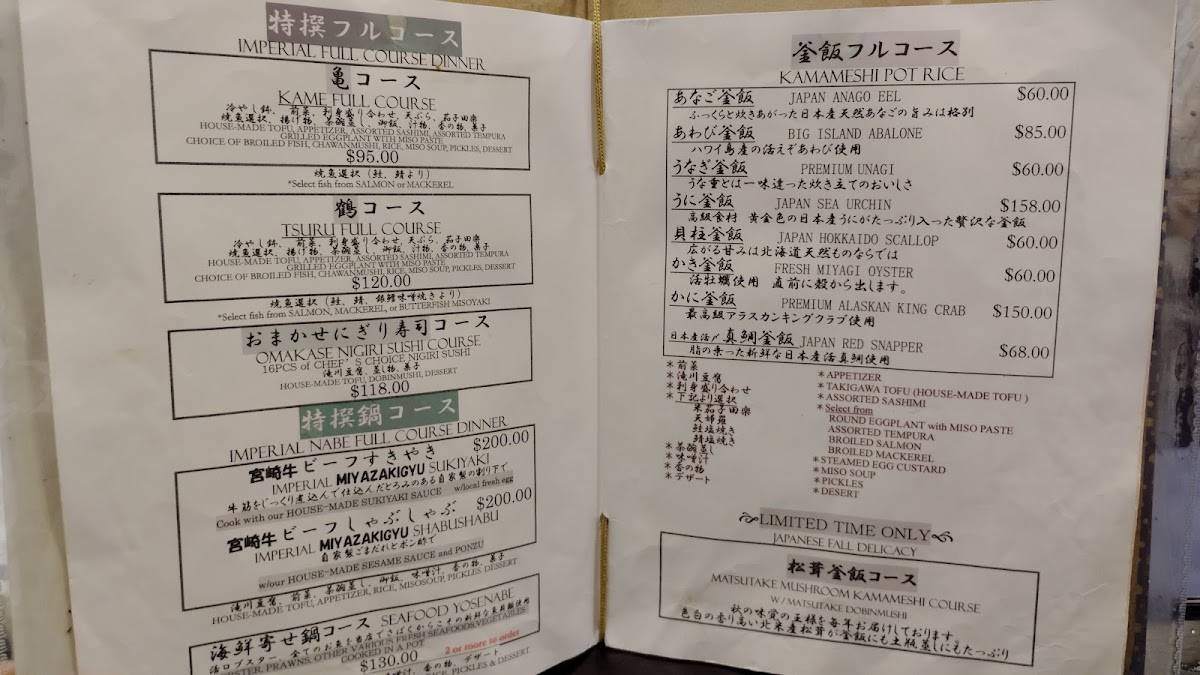 特撰フルコース
IMPERIAL FULL COURSE DINNER
亀コース
KAME FULL COURSE
冷やし鉢、 前菜、利身盛り合わせ、天ぷら、茄子田楽
焼魚選択、揚げ物、茶碗蒸し、御飯、汁物、香の物、菓子
HOUSE-MADE TOFU, APPETIZER, ASSORTED SASHIMI, ASSORTED TEMPURA
GRILLED EGGPLANT WITH MISO PASTE
CHOICE OF BROILED FISH, CHAWANMUSHI, RICE, MISO SOUP, PICKLES, DESSERT
$95.00
焼魚選択（鮭、鯖より）
*Select fish from SALMON or MACKEREL
鶴コース
TSURU FULL COURSE
冷やし鉢、 前菜、利身盛り合わせ、天ぷら、茄子田楽
焼魚選択、揚げ物、茶碗蒸し、御飯、汁物、香の物、菓子
HOUSE-MADE TOFU, APPETIZER, ASSORTED SASHIMI, ASSORTED TEMPURA
GRILLED EGGPLANT WITH MISO PASTE
CHOICE OF BROILED FISH, CHAWANMUSHI, RICE, MISO SOUP, PICKLES, DESSERT
$120.00
焼魚選択（鮭、鯖、銀鱈味噌焼きより）
*Select fish from SALMON, MACKEREL, or BUTTERFISH MISOYAKI
おまかせにぎり寿司コース
OMAKASE NIGIRI SUSHI COURSE
16PCS of CHEF'S CHOICE NIGIRI SUSHI
滝川豆腐、蒸し物、菓子
HOUSE-MADE TOFU, DOBINMUSHI, DESSERT
$118.00
特撰鍋コース
IMPERIAL NABE FULL COURSE DINNER
宮崎牛ビーフすきやき $200.00
IMPERIAL MIYAZAKIGYU SUKIYAKI
牛筋をじっくり煮込んで仕込んだとろみのある自家製の割り下で
Cook with our HOUSE-MADE SUKIYAKI SAUCE w/local fresh egg
宮崎牛ビーフしゃぶしゃぶ $200.00
IMPERIAL MIYAZAKIGYU SHABUSHABU
自家製ごまだれとポン酢で
w/our HOUSE-MADE SESAME SAUCE and PONZU
滝川豆腐、前菜、茶碗蒸し、御飯、味噌汁、香の物、菓子
HOUSE-MADE TOFU, APPETIZER, RICE, MISOSOUP, PICKLES, DESSERT
海鮮寄せ鍋コース SEAFOOD YOSENABE
活ロブスター、全てのお魚を当店でさばくからこその新鮮な魚貝類使用
LOBSTER, PRAWNS, OTHER VARIOUS FRESH SEAFOODS, VEGETABLES
COOKED IN A POT 2 or more to order
$130.00
味噌汁、香の物、デザート
RICE, PICKLES & DESSERT
釜飯フルコース
KAMAMESHI POT RICE
あなご釜飯 JAPAN ANAGO EEL $60.00
ふっくらと炊きあがった日本産天然あなごの旨みは格別
あわび釜飯 BIG ISLAND ABALONE $85.00
ハワイ島産の活えぞあわび使用
うなぎ釜飯 PREMIUM UNAGI $60.00
うな重とは一味違った炊き立てのおいしさ
うに釜飯 JAPAN SEA URCHIN $158.00
高級食材 黄金色の日本産うにがたっぷり入った贅沢な釜飯
貝柱釜飯 JAPAN HOKKAIDO SCALLOP $60.00
広がる甘みは北海道天然ものならでは
かき釜飯 FRESH MIYAGI OYSTER $60.00
活牡蠣使用 直前に殻から出します。
かに釜飯 PREMIUM ALASKAN KING CRAB $150.00
最高級アラスカンキングクラブ使用
日本産活〆真鯛釜飯 JAPAN RED SNAPPER $68.00
脂の乗った新鮮な日本産活真鯛使用
＊前菜
＊滝川豆腐
＊利身盛り合わせ
＊下記より選択
米茄子田楽
天婦羅
鮭塩焼き
鯖塩焼き
＊茶碗蒸し
＊味噌汁
＊香の物
＊デザート
＊APPETIZER
＊TAKIGAWA TOFU (HOUSE-MADE TOFU )
＊ASSORTED SASHIMI
＊Select from
ROUND EGGPLANT with MISO PASTE
ASSORTED TEMPURA
BROILED SALMON
BROILED MACKEREL
＊STEAMED EGG CUSTARD
＊MISO SOUP
＊PICKLES
＊DESERT
LIMITED TIME ONLY
JAPANESE FALL DELICACY
松茸釜飯コース
MATSUTAKE MUSHROOM KAMAMESHI COURSE
W/ MATSUTAKE DOBINMUSHI
秋の味覚の王様を毎年お届けしております。
色白の香り高い北米産松茸が釜飯にも土瓶蒸しにもたっぷり